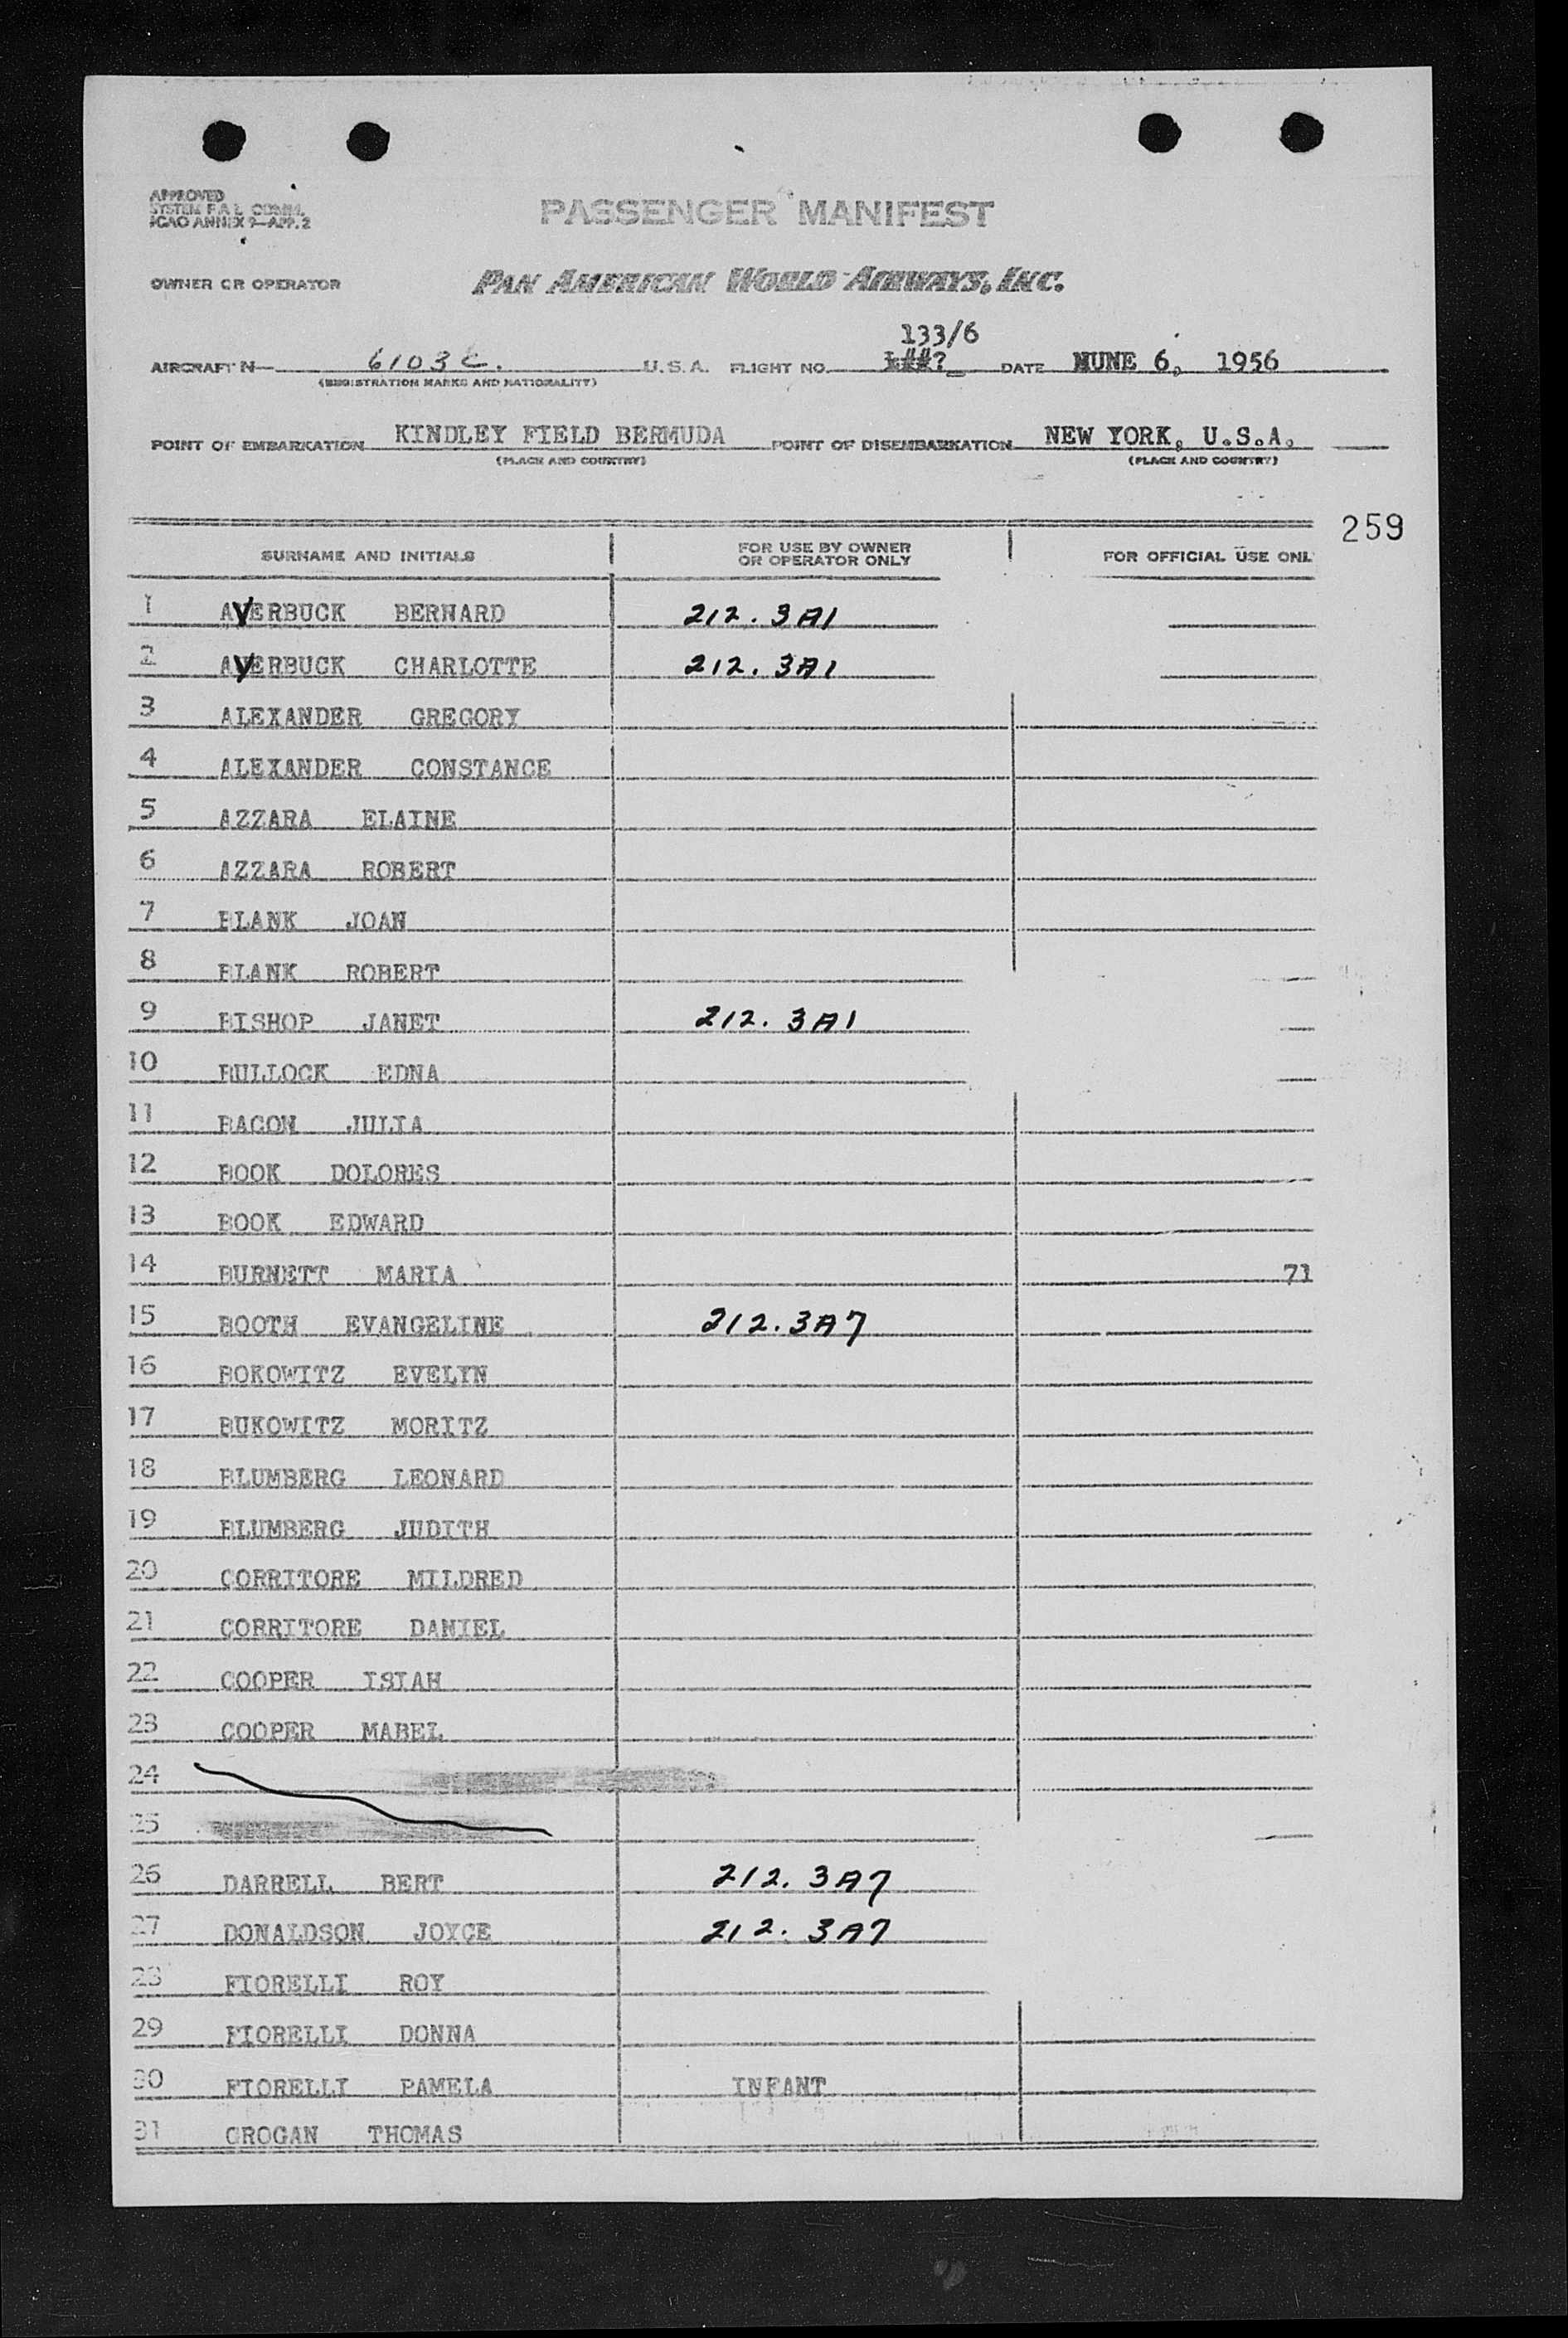 APPROVED
SYSTEM F.A.L.
ICAO ANNEX 9—APP. 2
PASSENGER MANIFEST
OWNER OR OPERATOR PAN AMERICAN WORLD AIRWAYS, INC.
133/6
AIRCRAFT N— 6103C. U.S.A. FLIGHT NO. DATE NUNE 6, 1956
(REGISTRATION MARKS AND NATIONALITY)
POINT OF EMBARKATION KINDLEY FIELD BERMUDA POINT OF DISEMBARKATION NEW YORK, U.S.A.
(PLACE AND COUNTRY) (PLACE AND COUNTRY)
259
SURNAME AND INITIALS FOR USE BY OWNER OR OPERATOR ONLY FOR OFFICIAL USE ONL
1 AVERBUCK BERNARD 212.3A1
2 AVERBUCK CHARLOTTE 212.3A1
3 ALEXANDER GREGORY
4 ALEXANDER CONSTANCE
5 AZZARA ELAINE
6 AZZARA ROBERT
7 BLANK JOAN
8 BLANK ROBERT
9 BISHOP JANET 212.3A1
10 BULLOCK EDNA
11 BACON JULIA
12 BOOK DOLORES
13 BOOK EDWARD
14 BURNETT MARIA 71
15 BOOTH EVANGELINE 212.3A7
16 BOKOWITZ EVELYN
17 BUKOWITZ MORITZ
18 BLUMBERG LEONARD
19 BLUMBERG JUDITH
20 CORRITORE MILDRED
21 CORRITORE DANIEL
22 COOPER ISIAH
23 COOPER MABEL
24
25
26 DARRELL BERT 212.3A7
27 DONALDSON JOYCE 212.3A7
28 FIORELLI ROY
29 FIORELLI DONNA
30 FIORELLI PAMELA INFANT
31 CROGAN THOMAS